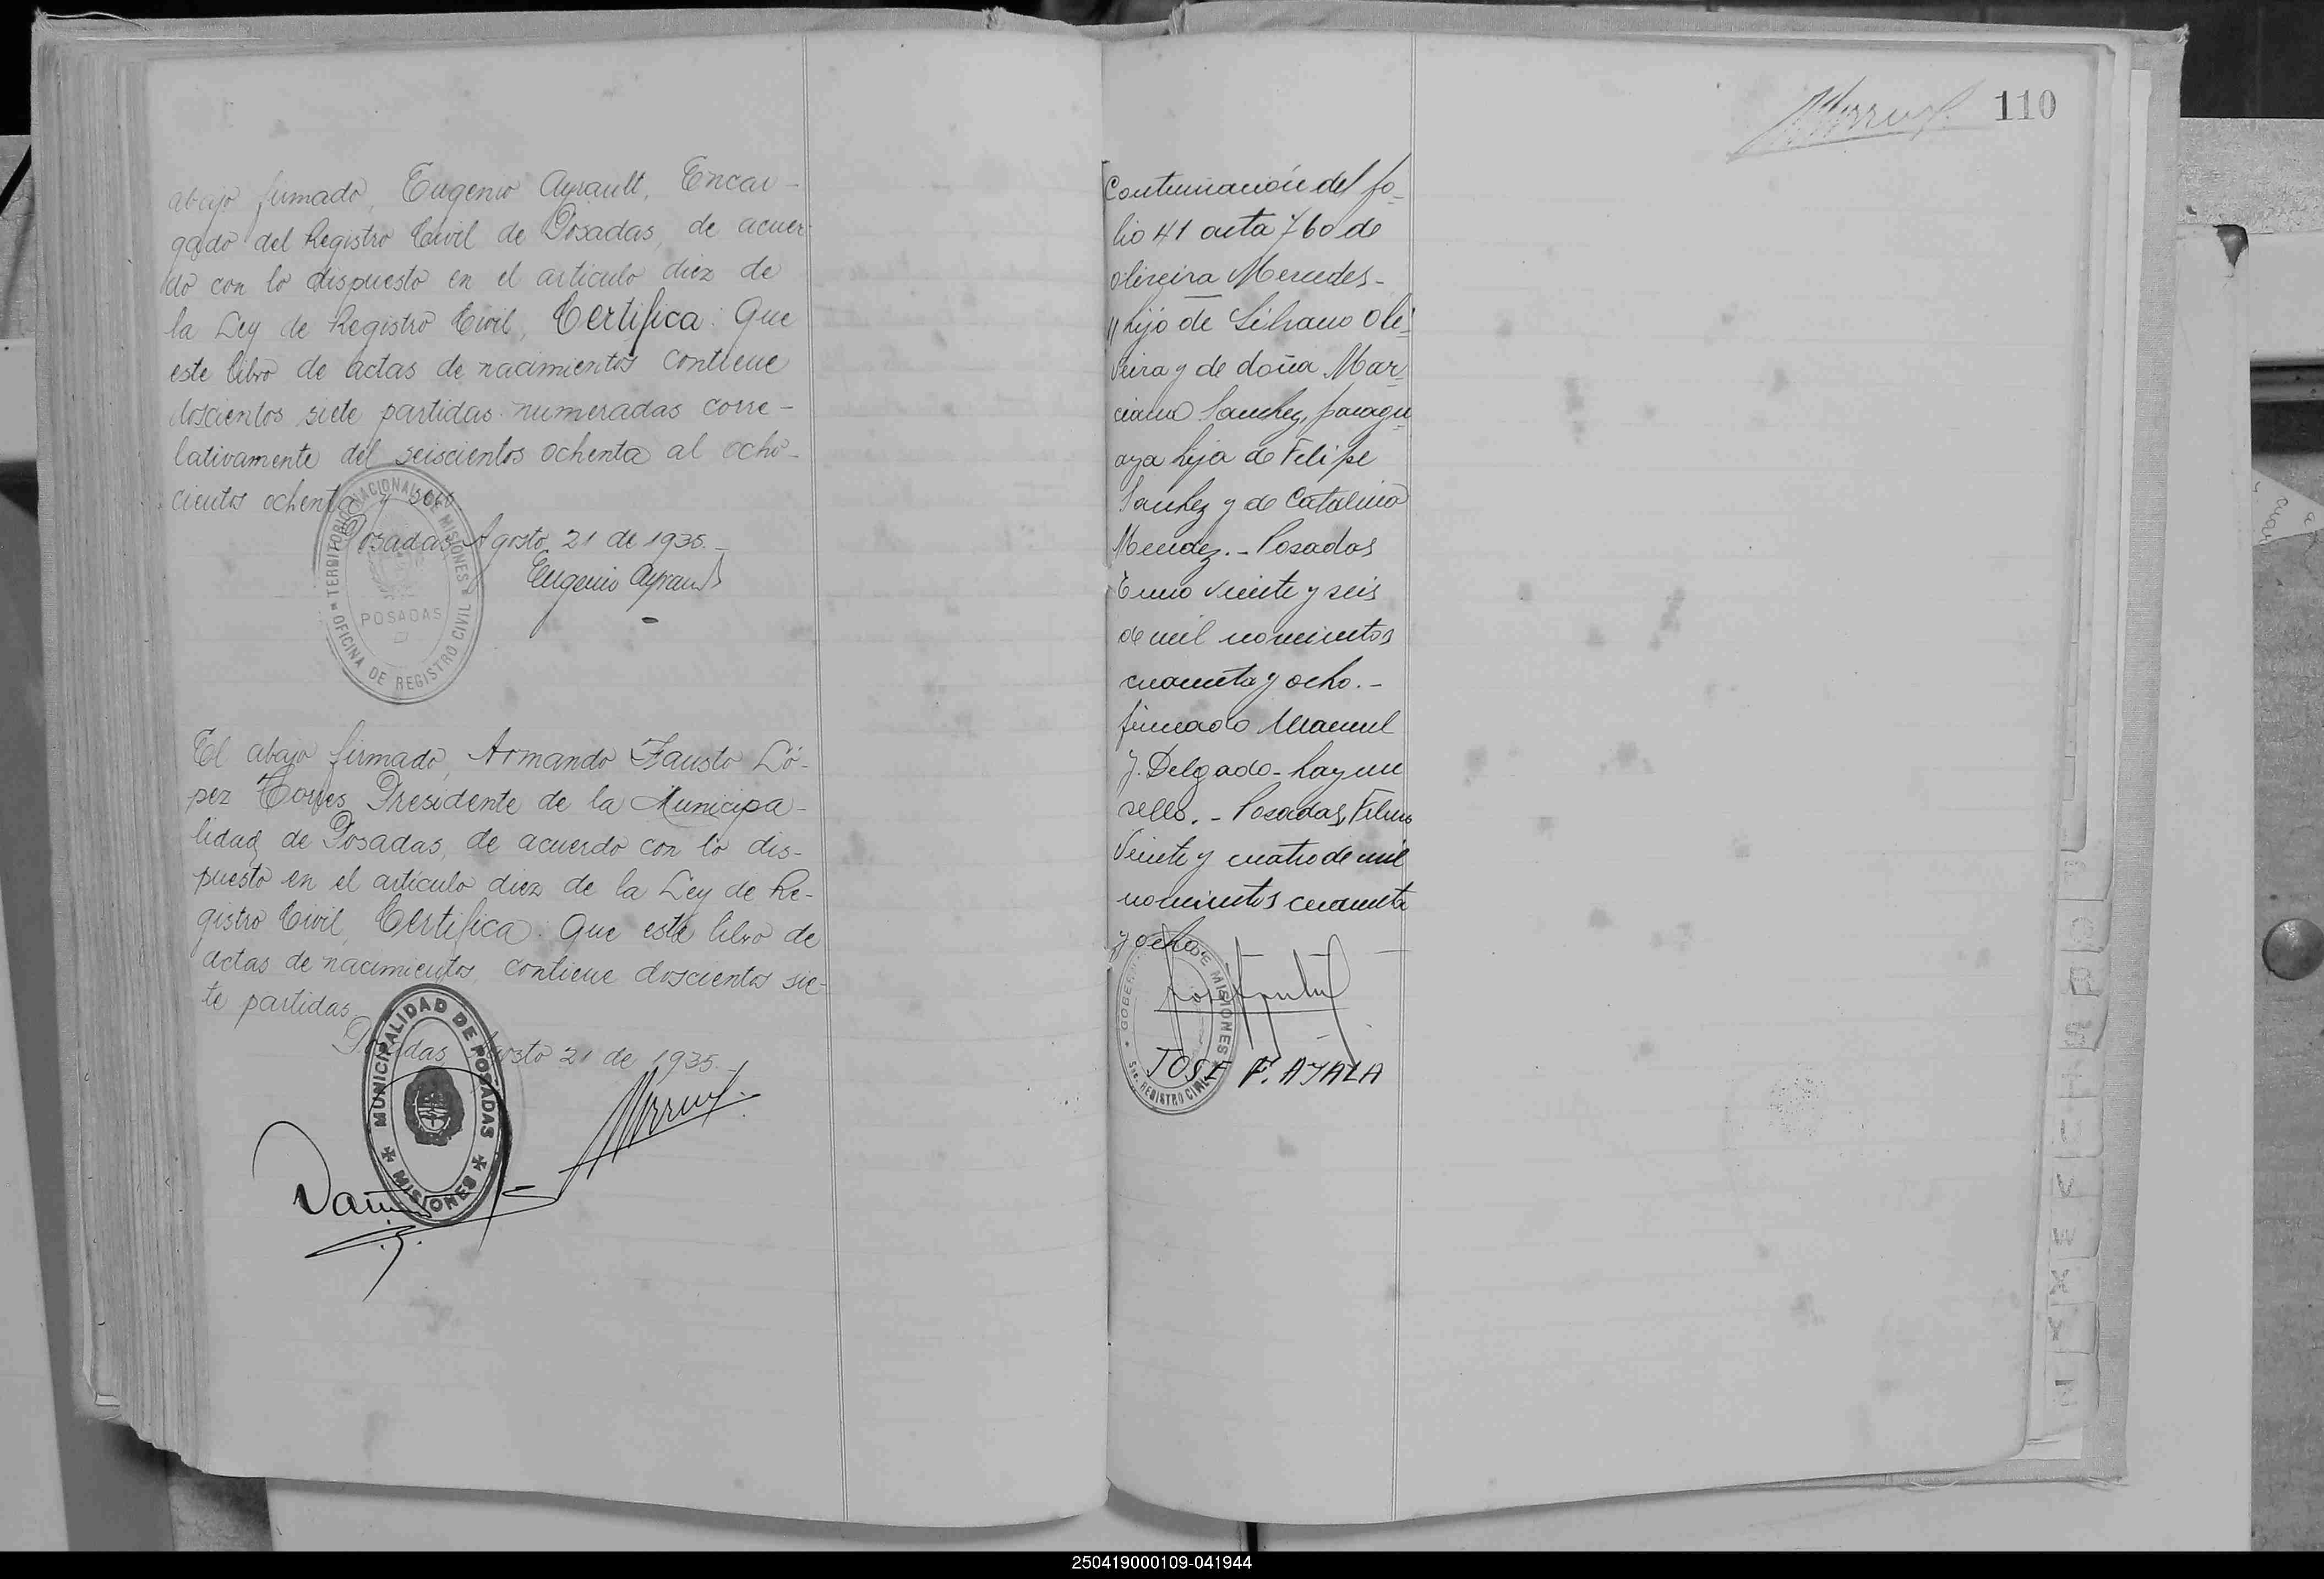 abajo firmado, Eugenio Ayrault, Encar-
gado del Registro Civil de Posadas, de acuer
do con lo dispuesto en el artículo diez de
la Ley de Registro Civil, Certifica: Que
este libro de actas de nacimientos contiene
doscientos siete partidas numeradas corre-
lativamente del seiscientos ochenta al ocho-
cientos ochenta y seis
Posadas Agosto 21 de 1935.-
Eugenio Ayrault
TERRITORIO NACIONAL DE MISIONES
POSADAS
OFICINA DE REGISTRO CIVIL
El abajo firmado, Armando Fausto Ló-
pez Torres Presidente de la Municipa-
lidad de Posadas, de acuerdo con lo dis-
puesto en el artículo diez de la Ley de Re-
gistro Civil, Certifica: Que este libro de
actas de nacimientos, contiene doscientos sie-
te partidas
Posadas, Agosto 21 de 1935.-
MUNICIPALIDAD DE POSADAS
MISIONES
110
Continuación del fo-
lio 41 acta 760 de
Oliveira Mercedes-
hijo de Silvano Oli-
veira y de doña Mar-
ciana Sanchez, paragu
aya hija de Felipe
Sanchez y de Catalina
Mendez.- Posadas
Enero veinte y seis
de mil novecientos
cuarenta y ocho.-
firmado Manuel
J. Delgado- hay un
sello.- Posadas, Febrero
veinte y cuatro de mil
novecientos cuarenta
y ocho
DE MISIONES
REGISTRO CIVIL
JOSE F. AYALA
V
W
X
Y
250419000109-041944